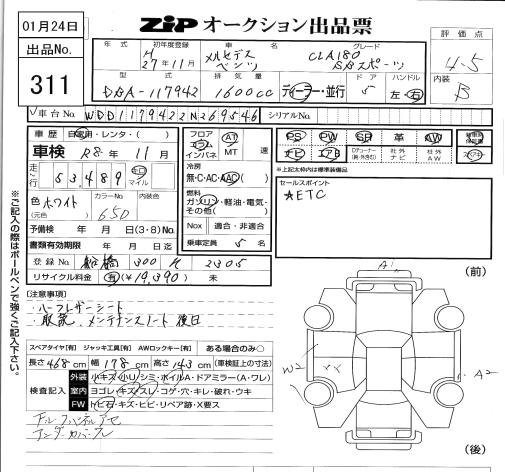 01月24日
ZIP オークション出品票
評価点
4-5
出品No.
311
年式
初年度登録
H
27年11月
車名
メルセデス
ベンツ
グレード
CLA180
SBスポーツ
型式
DBA-117942
排気量
1600cc
ディーラー・並行
ドア
5
ハンドル
左・右
内装
B
車台No.
WDD1179422N269546
シリアルNo.
車歴 自家用・レンタ・( )
車検 R8年 11月
走行
53,489
キロ
マイル
色 ホワイト
(元色)
カラーNo.
650
内装色
予備検 年 月 日(3・8)No.
書類有効期限 年 月 日迄
登録No. 船橋 300 H 2305
リサイクル料金 有(¥19,390) 未
フロア
インパネ
AT
MT
速
冷房
無・C・AC・AAC( )
燃料
ガソリン・軽油・電気・
その他( )
Nox 適合・非適合
乗車定員 5 名
PS PW SR 革 AW
ナビ エアB
社外
ナビ
社外
AW
※上記太枠内は標準装備品
セールスポイント
★ETC
[注意事項]
・ハーフレザーシート
・取説、メンテナンスノート後日
スペアタイヤ[有] ジャッキ工具[有] AWロックキー[有] ある場合のみ○
長さ 468 cm 幅 178 cm 高さ 143 cm (車検証上の寸法)
検査記入
外装 小キズ・小リ・シミ・ホイルA・ドアミラー(A・ワレ)
室内 ヨゴレ・キズ・スレ・コゲ・穴・キレ・破れ・ウキ
FW トビ石・キズ・ヒビ・リペア跡・X要ス
アンダーカバー
※ご記入の際はボールペンで強くご記入下さい。
(前)
A1
W2
A2
(後)